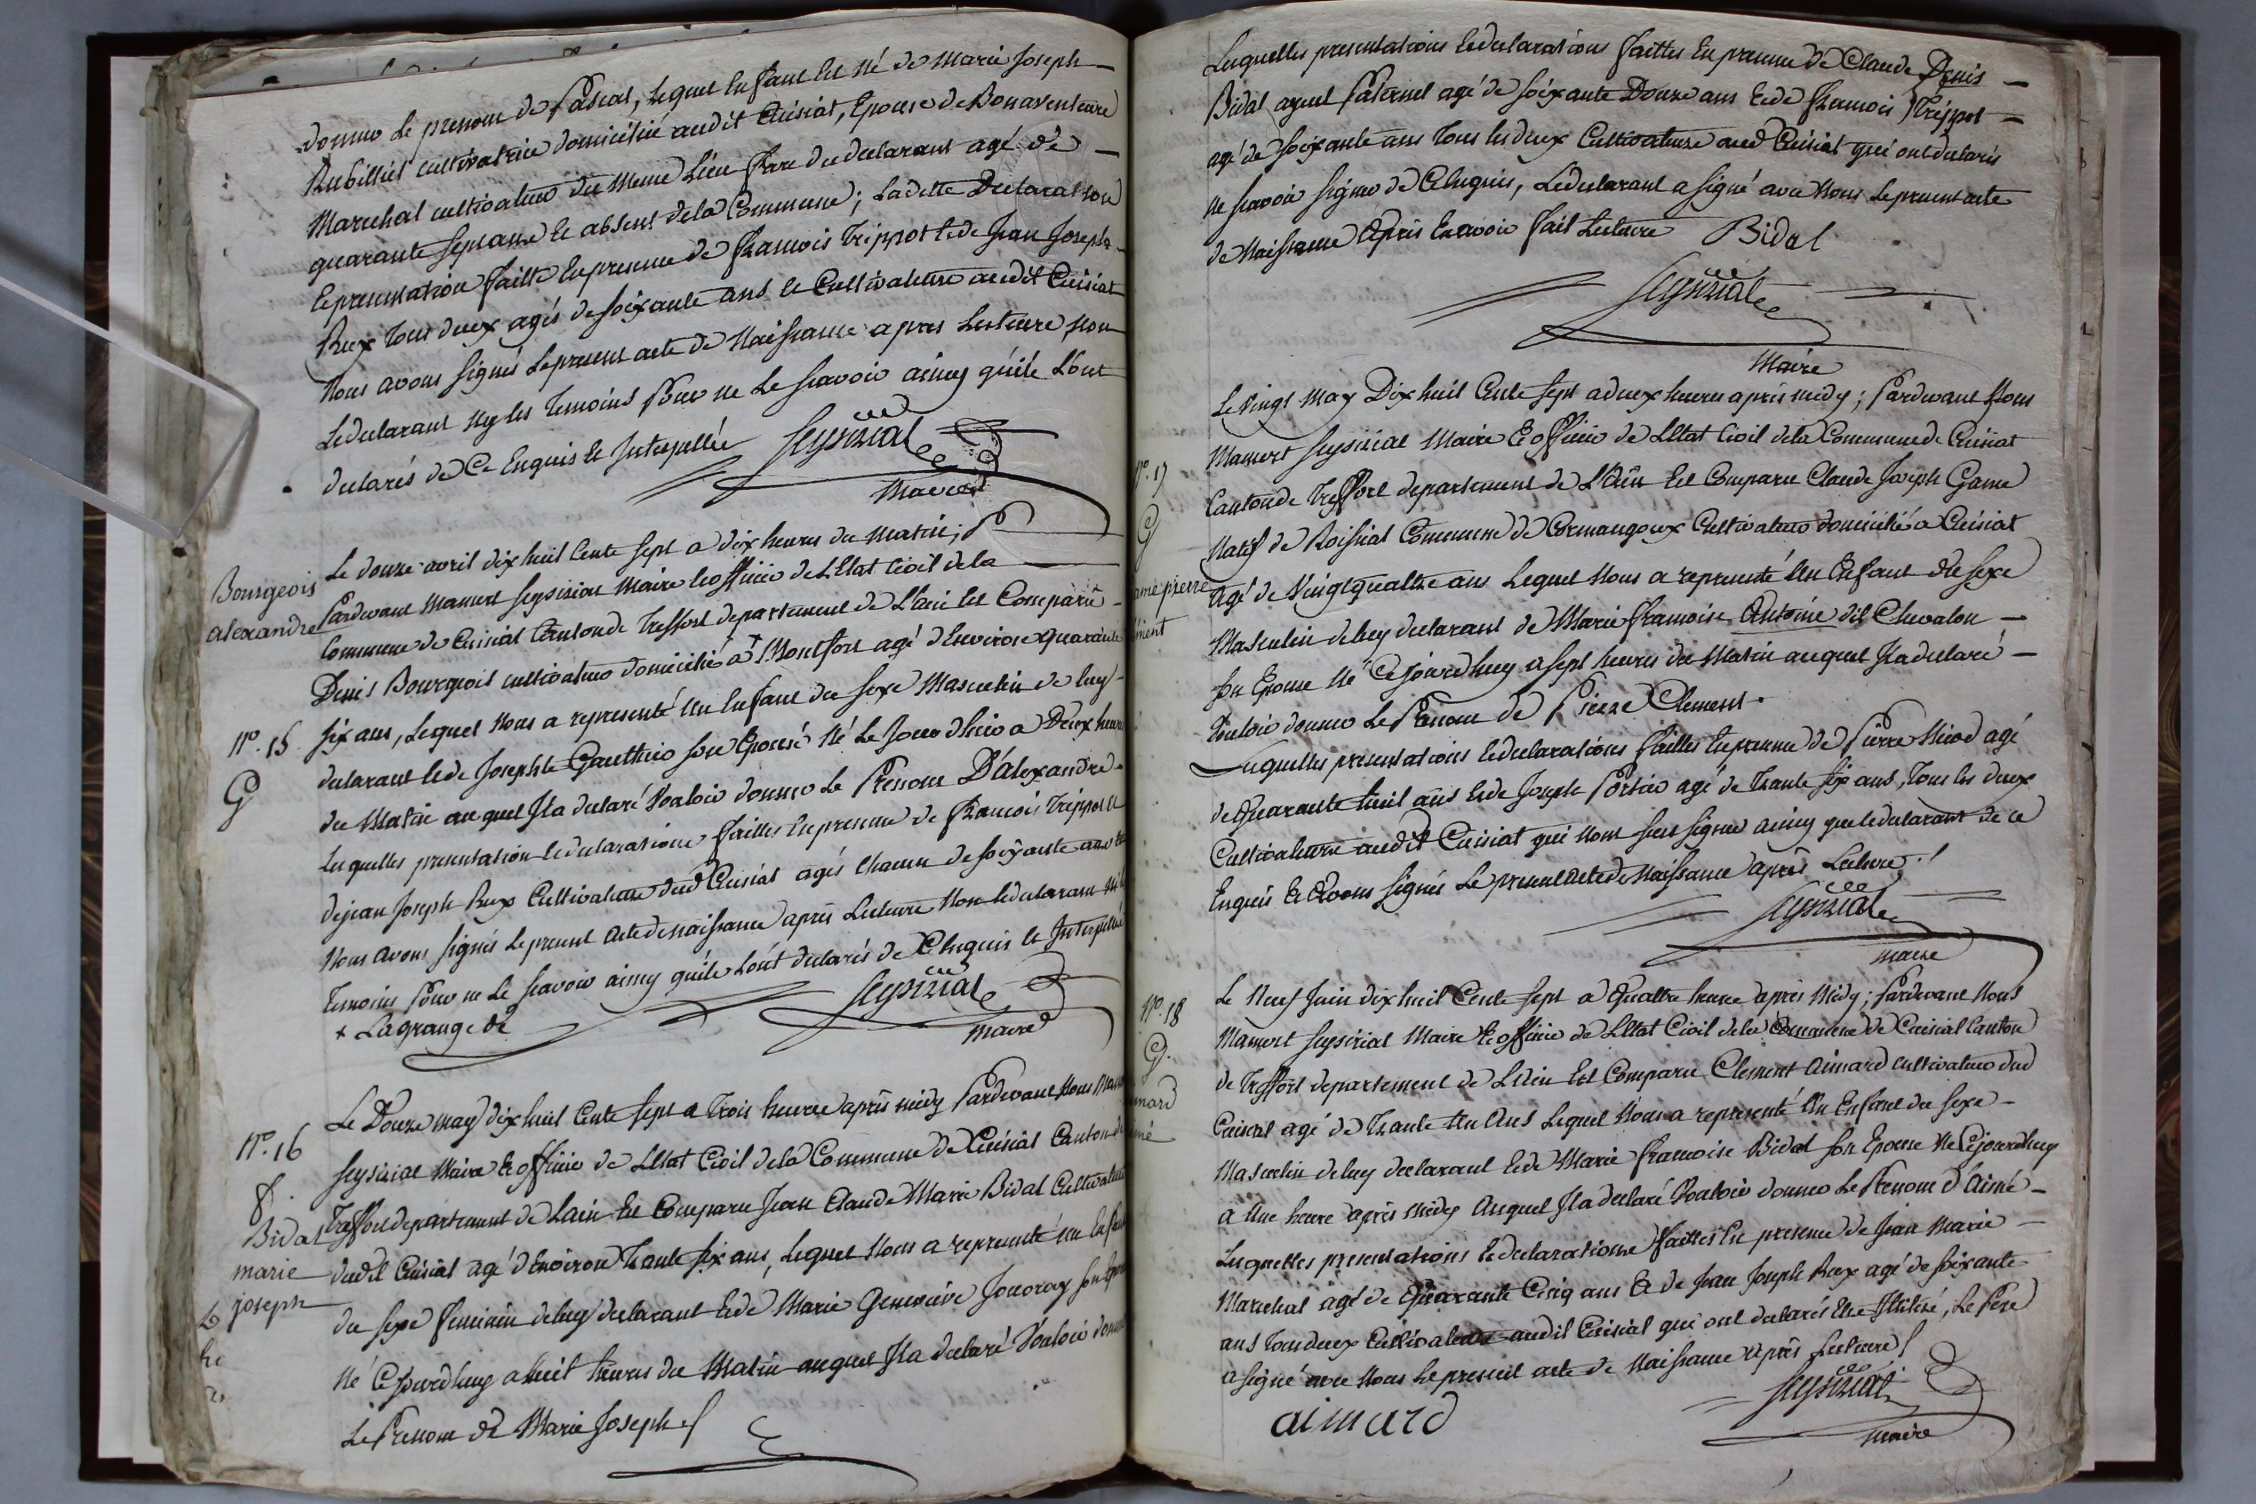 donner le prenom de Pascal, lequel Enfant Est Né de Marie Joseph
Rubilliet cultivatrice domiciliée audit Cuisiat, Epouse de Bonaventure
Marechal cultivateur du Meme Lieu frere du declarant agé de
quarante sept ans Et absent de la Commune; Ladette Declaration
Et presentation faitte En presence de francois Treppoz Et de Jean Joseph
Rux tous deux agés de soixante ans Et Cultivateurs audit Cuisiat
Nous avons signés Le present acte de Naissance apres Lecture, Non
Le declarant Ny les Temoins Pour ne Le scavoir ainsy qu'ils L'ont
declarés de Ce Enquis Et Interpellés
Seysirial
Maire
Bourgeois
alexandre
Nº. 15
G
Le douze avril dix huit Cents sept a dix heures du Matin;
Pardevant Mamert Seysirial Maire Et officier de L'Etat Civil de la
Commune de Cuisiat Canton de Treffort departement de L'ain Est Comparu
Denis Bourgeois cultivateur domicilié à + Montfort agé d'Environ quarante
six ans, Lequel Nous a representé Un Enfant du sexe Masculin de luy
declarant Et de Josephte Gauthier son Epouse Né Le Jour d'hier a Deux heures
du Matin auquel Il a declaré Vouloir donner Le Prenom D'alexandre
Lesquelles presentation Et declaration faittes En presence de francois Treppoz Et
de jean Joseph Rux Cultivateurs dud Cuisiat agés chacun de soixante ans Et
Nous avons signés Le present Acte de naissance après Lecture Non Le declarant Ni les
Temoins Pour ne Le scavoir ainsy qu'ils L'ont declarés de Ce Enquis Et Interpellés
+ Lagrange de
Seysirial
maire
Nº. 16
f.
Bidal
marie
joseph
Le Douze may dix huit Cents sept a Trois heures après midy Pardevant Nous
Seysirial Maire Et officier de L'Etat Civil de la Commune de Cuisiat Canton de
Treffort departement de Lain Est Comparu Jean Claude Marie Bidal Cultivateur
dudit Cuisiat agé d'Environ Trante six ans, Lequel Nous a representé un Enfant
du sexe feminin de luy declarant Et de Marie Genevieve Jouvray son Epouse
Né Cejourdhuy a huit heures du Matin auquel Il a declaré Vouloir donner
Le Prenom de Marie Joseph
Lesquelles presentations Et declarations faittes En presence de Claude Denis
Bidal ayeul Paternel agé de soixante Douze ans Et de francois Treppoz
agé de soixante ans Tous les deux Cultivateurs aud Cuisiat qui ont declarés
ne scavoir signer de Ce Enquis, Le declarant a signé avec Nous Le present acte
de Naissance Après En avoir fait Lecture Bidal
Seysirial
Maire
Nº. 17
G
ame pierre
ément
Le Vingt May Dix huit Cents sept a deux heures après midy; Pardevant Nous
Mamert Seysirial Maire Et officier de L'Etat Civil de la Commune de Cuisiat
Canton de Treffort departement de L'Ain Est Comparu Claude Joseph Game
Natif de Roissiat Commune de Cormangoux Cultivateur domicilié a Cuisiat
Agé de Vingt quattre ans Lequel Nous a representé Un Enfant du sexe
Masculin de luy declarant de Marie francoise Antoine dit Chevalon
son Epouse Né Cejourdhuy a sept heures du Matin auquel Il a declaré
Vouloir donner Le Prenom de Pierre Clement.
Lesquelles presentations Et declarations faittes En presence de Pierre Niod agé
de Quarante huit ans Et de Joseph Portier agé de Trante six ans, Tous les deux
Cultivateurs audit Cuisiat qui Nont sceu signer ainsy que le declarant de ce
Enquis Et Avons signés Le present Acte de Naissance après Lecture.
Seysirial
maire
Nº. 18
G.
mard
mé
Le Neuf Juin dix huit Cents sept a Quattre heures après Midy; Pardevant Nous
Mamert Seysirial Maire Et officier de L'Etat Civil de la Commune de Cuisiat Canton
de Treffort departement de L'Ain Est Comparu Clement Aimard cultivateur dud
Cuisiat agé de Trante Un Ans Lequel Nous a representé Un Enfant du sexe
Masculin de luy declarant Et de Marie francoise Bidal son Epouse Né Cejourdhuy
a Une heure après Midy Auquel Il a declaré Vouloir donner Le Prenom d'Aimé
Lesquelles presentations Et declarations faittes En presence de Jean Marie
Marechal agé de Quarante Cinq ans Et de Jean Joseph Rux agé de soixante
ans Tous deux Cultivateurs audit Cuisiat qui ont declarés Etre Illitéré, Le Pere
a signé avec Nous Le present acte de Naissance après Lecture
aimard
Seysirial
maire